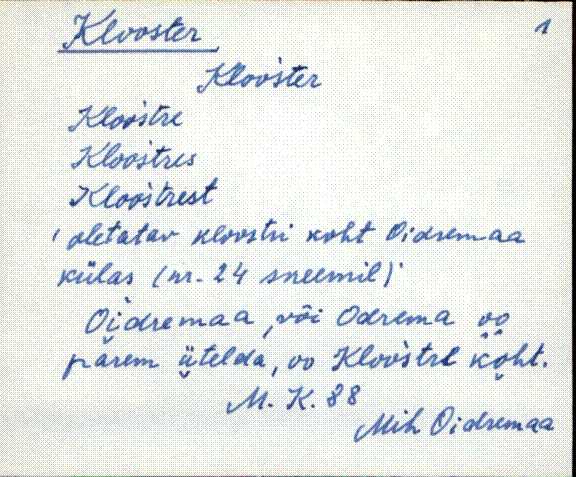 Klooster 1
Kloo`ster
Kloo`stre
Kloo`stres
Kloo`strest
'oletatav kloostri koht Oidremaa
külas (nr. 24 skeemil)'
Oi`dremaa, või Odrema oo
pa̬rem ü̬telda, oo Kloo`stre ko̬ht.
M. K. 88
Mih Oidremaa